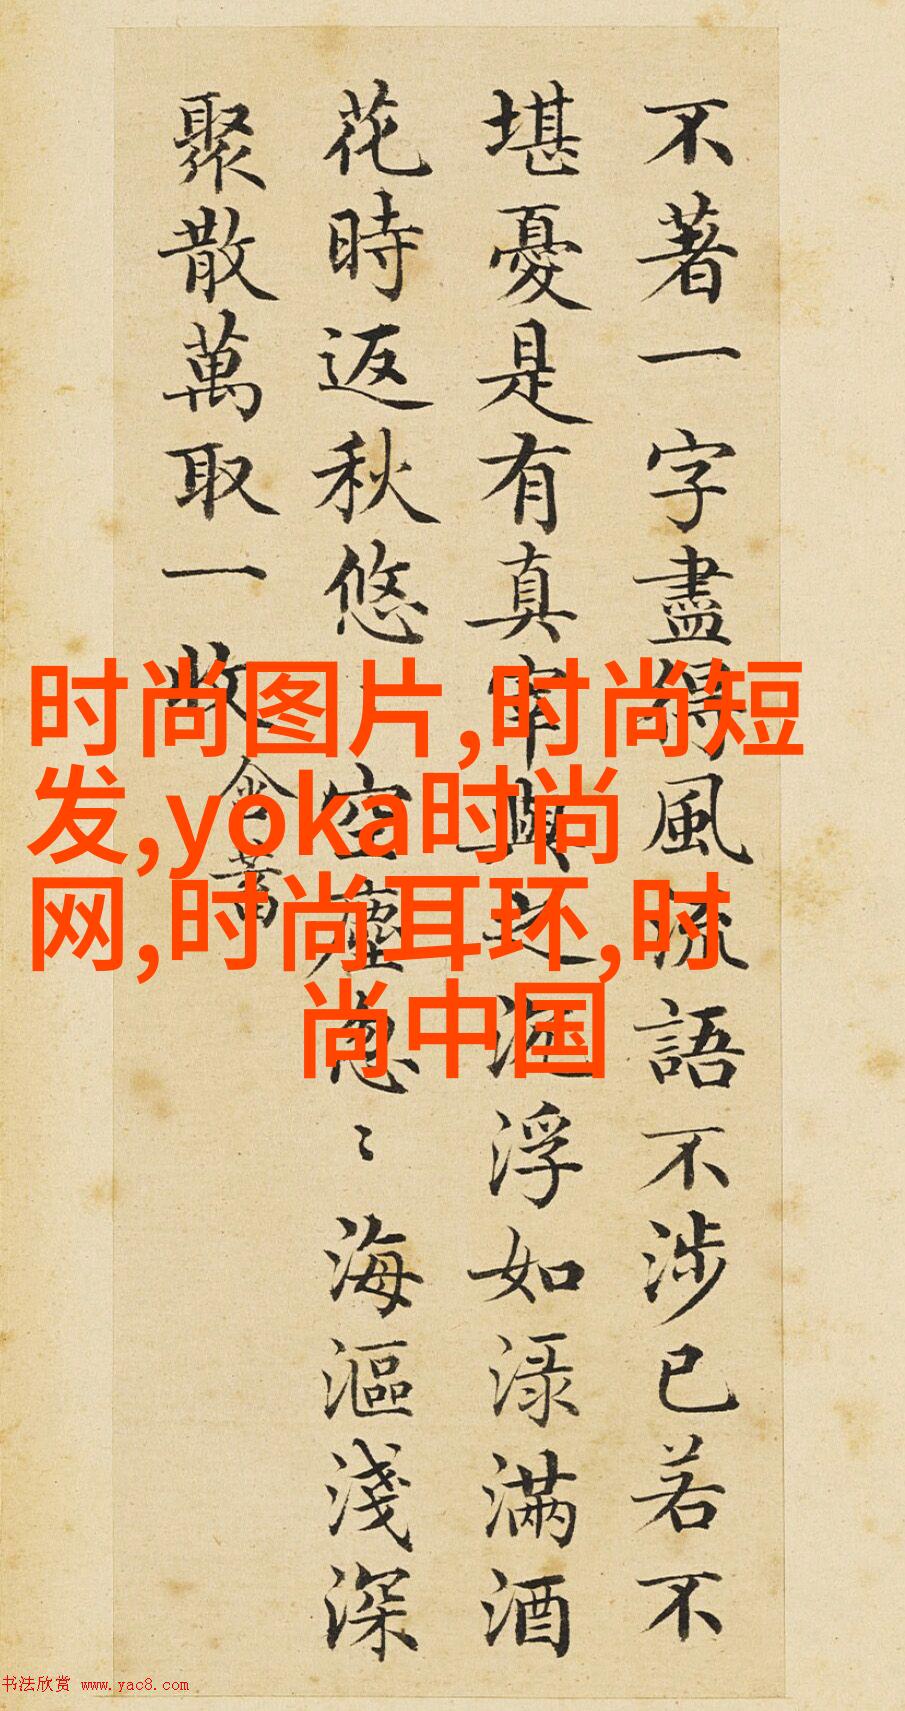 不著一字盡得風流語不涉已若不
堪憂是有真宰與之沉浮如渌滿酒
花時返秋悠〻空塵忽〻海漚淺深
聚散萬取一收
时尚图片,时尚短
发,yoka时尚
网,时尚耳环,时
尚中国
书法欣赏 www.yac8.com